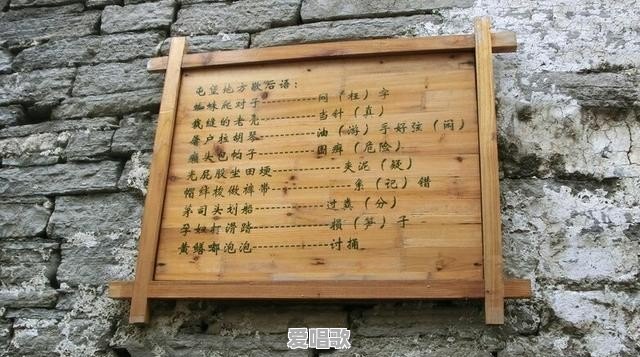 屯堡地方歇后语：
蜘蛛爬对子------------网（枉）字
裁缝的老壳------------当针（真）
屠户拉胡琴------------油（游）手好弦（闲）
癞头包帕子------------围癣（危险）
光屁股坐田埂--------------夹泥（疑）
帽绊梭做裤带--------------系（记）错
茅司头划船------------过粪（分）
孕妇打滑踏------------损（笋）子
黄鳝嘟泡泡------------讨捅
爱唱歌